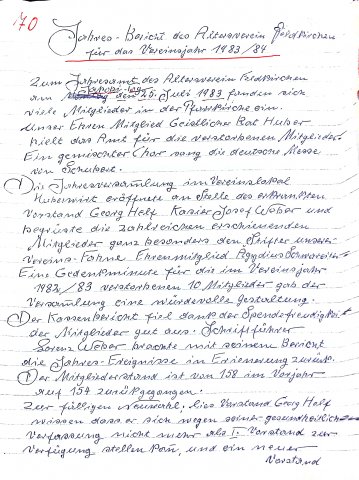 170
Jahres-Bericht des Altersverein Feldkirchen
für das Vereinsjahr 1983/84
Zum Jahresamt des Altersverein Feldkirchen
am den 25. Juli 1983 fanden sich
viele Mitglieder in der Pfarrkirche ein.
Unser Ehren Mitglied Geistlicher Rat Huber
hielt das Amt für die verstorbenen Mitglieder.
Ein gemischter Chor sang die deutsche Messe
von Schubert.
Die Jahresversammlung im Vereinslokal
Huberwirt eröffnete an Stelle des erkrankten
Vorstand Georg Half Kasier Josef Weber und
begrüste die zahlreichen erschienenden
Mitglieder ganz besonders den Stifter unserer
Vereins-Fahne Ehrenmitglied Ägydius
Eine Gedenkminute für die im Vereinsjahr
1982/83 verstorbenen 10 Mitglieder gab der
Versamlung eine würdevolle gestaltung.
Der Kassenbericht fiel dank der Spendefreudigkeit
der Mitglieder gut aus. Schriftführer
Lorenz Weber brachte mit seinem Bericht
die Jahres-Ereignisse in Erinerung zurück.
Der Mitgliederstand ist von 158 im Vorjahr
auf 154 zurükgegangen.
Zur fälligen Neuwahl lies Vorstand Georg Half
wissen das er sich wegen seiner gesundheitlichen
Verfassung nicht mehr als I. Vorstand zur
Verfügung stellen kan, und ein neuer
Vorstand